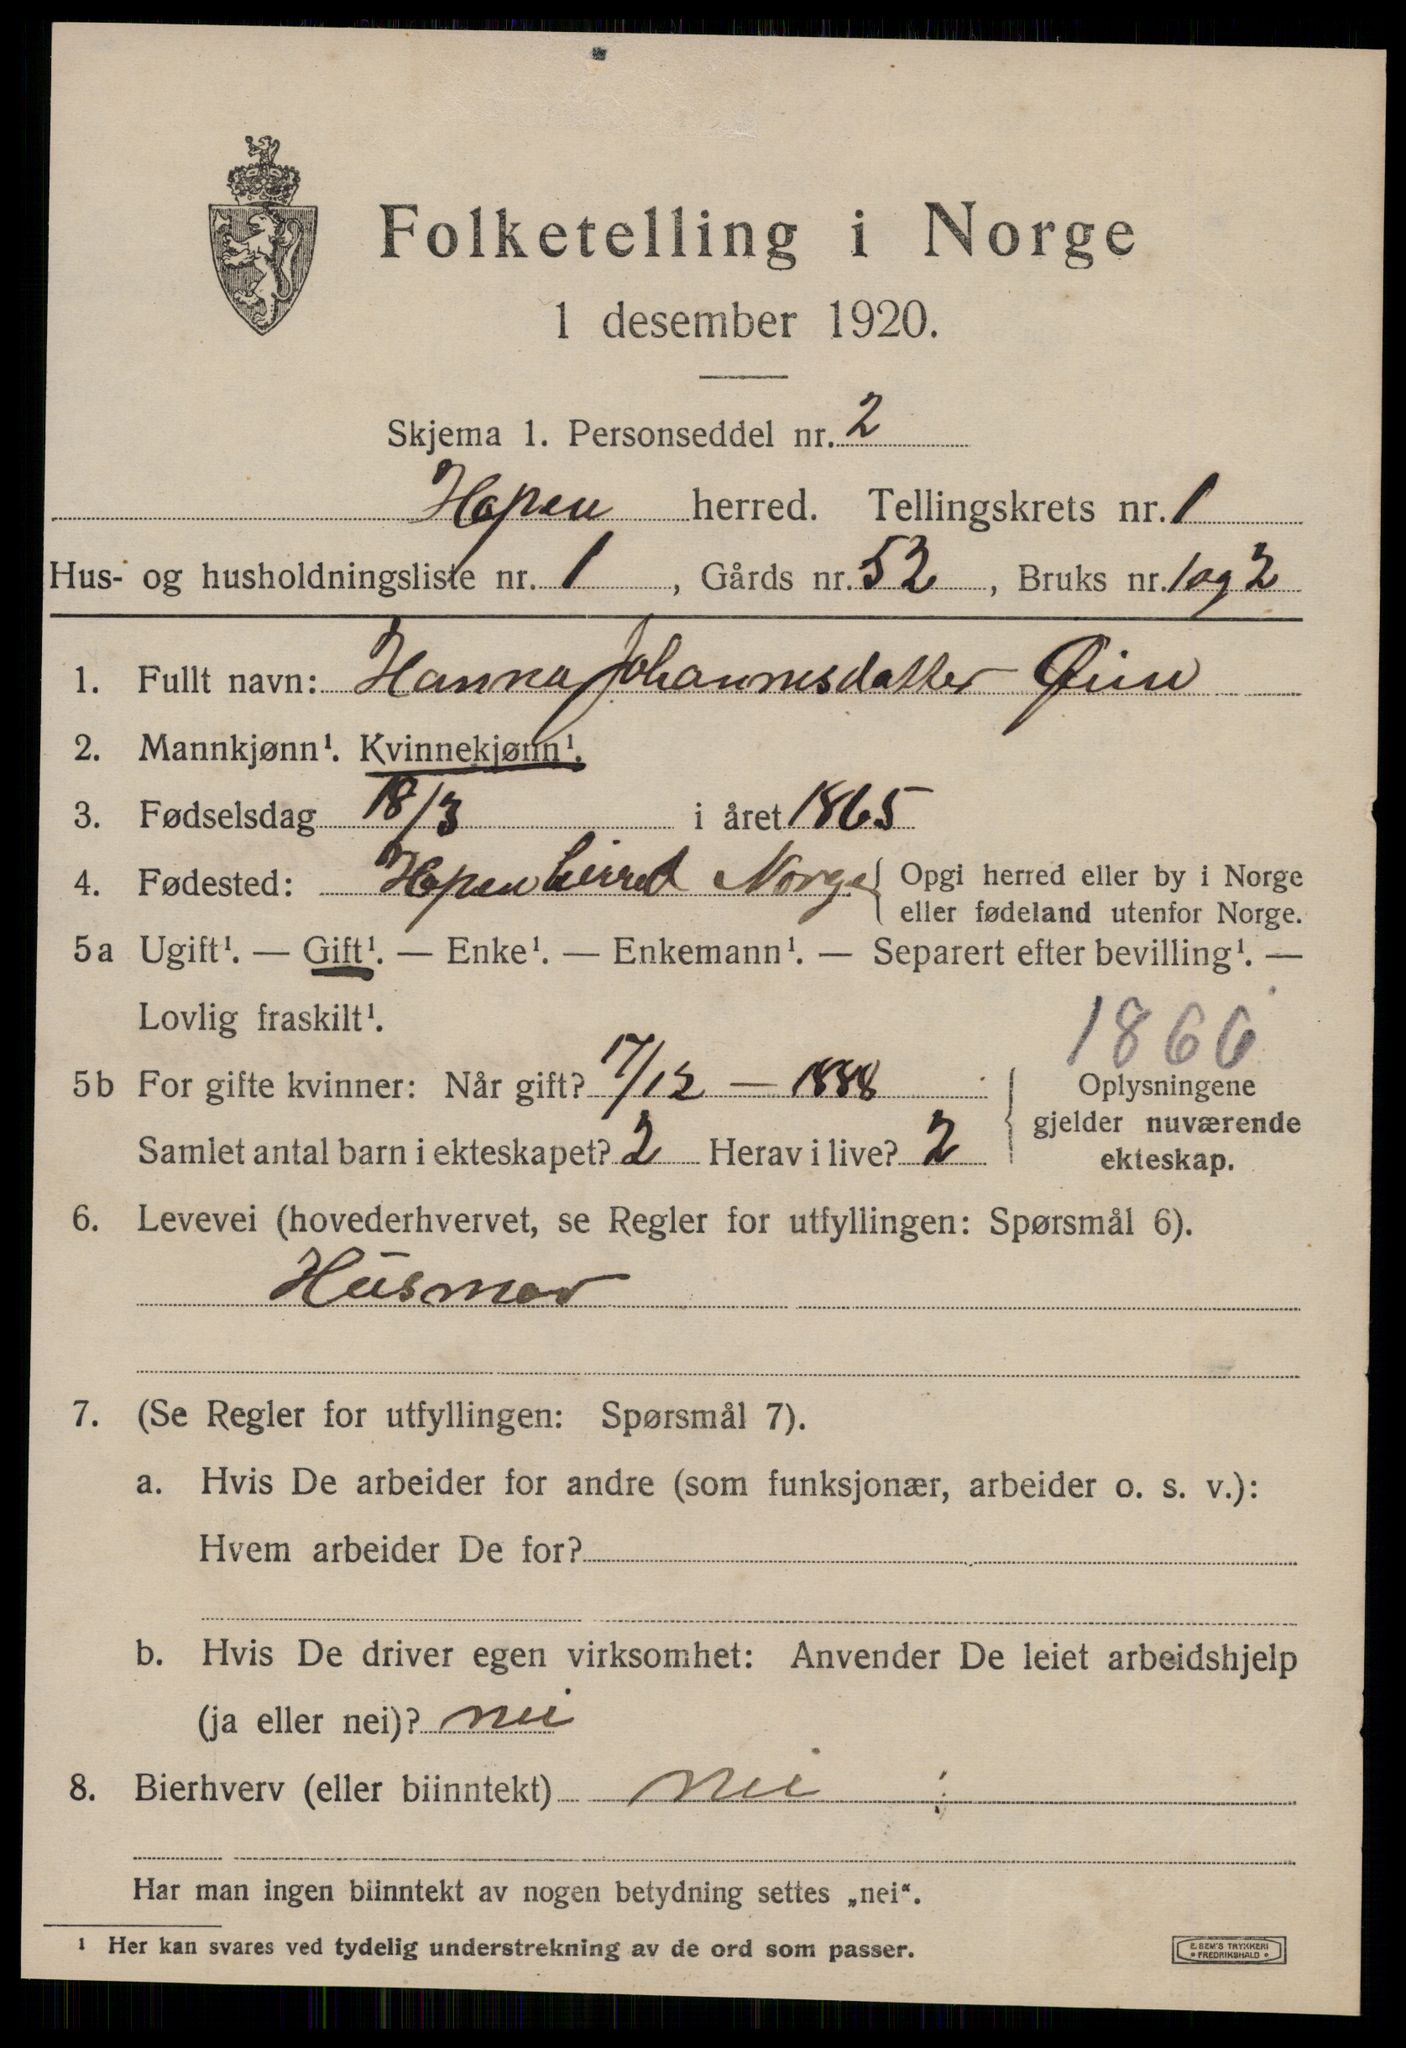 Folketelling i Norge
1 desember 1920.
Skjema 1. Personseddel nr. 2
Hopen herred. Tellingskrets nr. 1
Hus- og husholdningsliste nr. 1, Gårds nr. 52, Bruks nr. 1 og 2
1. Fullt navn: Hanna Johannesdatter Øien
2. Mannkjønn¹. Kvinnekjønn¹.
3. Fødselsdag 18/3 i året 1865
4. Fødested: Hopen herred Norge { Opgi herred eller by i Norge
eller fødeland utenfor Norge.
5a Ugift¹. — Gift¹. — Enke¹. — Enkemann¹. — Separert efter bevilling¹. —
Lovlig fraskilt¹.
1866
5b For gifte kvinner: Når gift? 17/12 — 1888 { Oplysningene
gjelder nuværende
Samlet antal barn i ekteskapet? 2 Herav i live? 2
ekteskap.
6. Levevei (hovederhvervet, se Regler for utfyllingen: Spørsmål 6).
Husmor
7. (Se Regler for utfyllingen: Spørsmål 7).
a. Hvis De arbeider for andre (som funksjonær, arbeider o. s. v.):
Hvem arbeider De for?
b. Hvis De driver egen virksomhet: Anvender De leiet arbeidshjelp
(ja eller nei)? nei
8. Bierhverv (eller biinntekt) nei
Har man ingen biinntekt av nogen betydning settes „nei“.
¹ Her kan svares ved tydelig understrekning av de ord som passer.
E. SEM'S TRYKKERI
FREDRIKSHALD